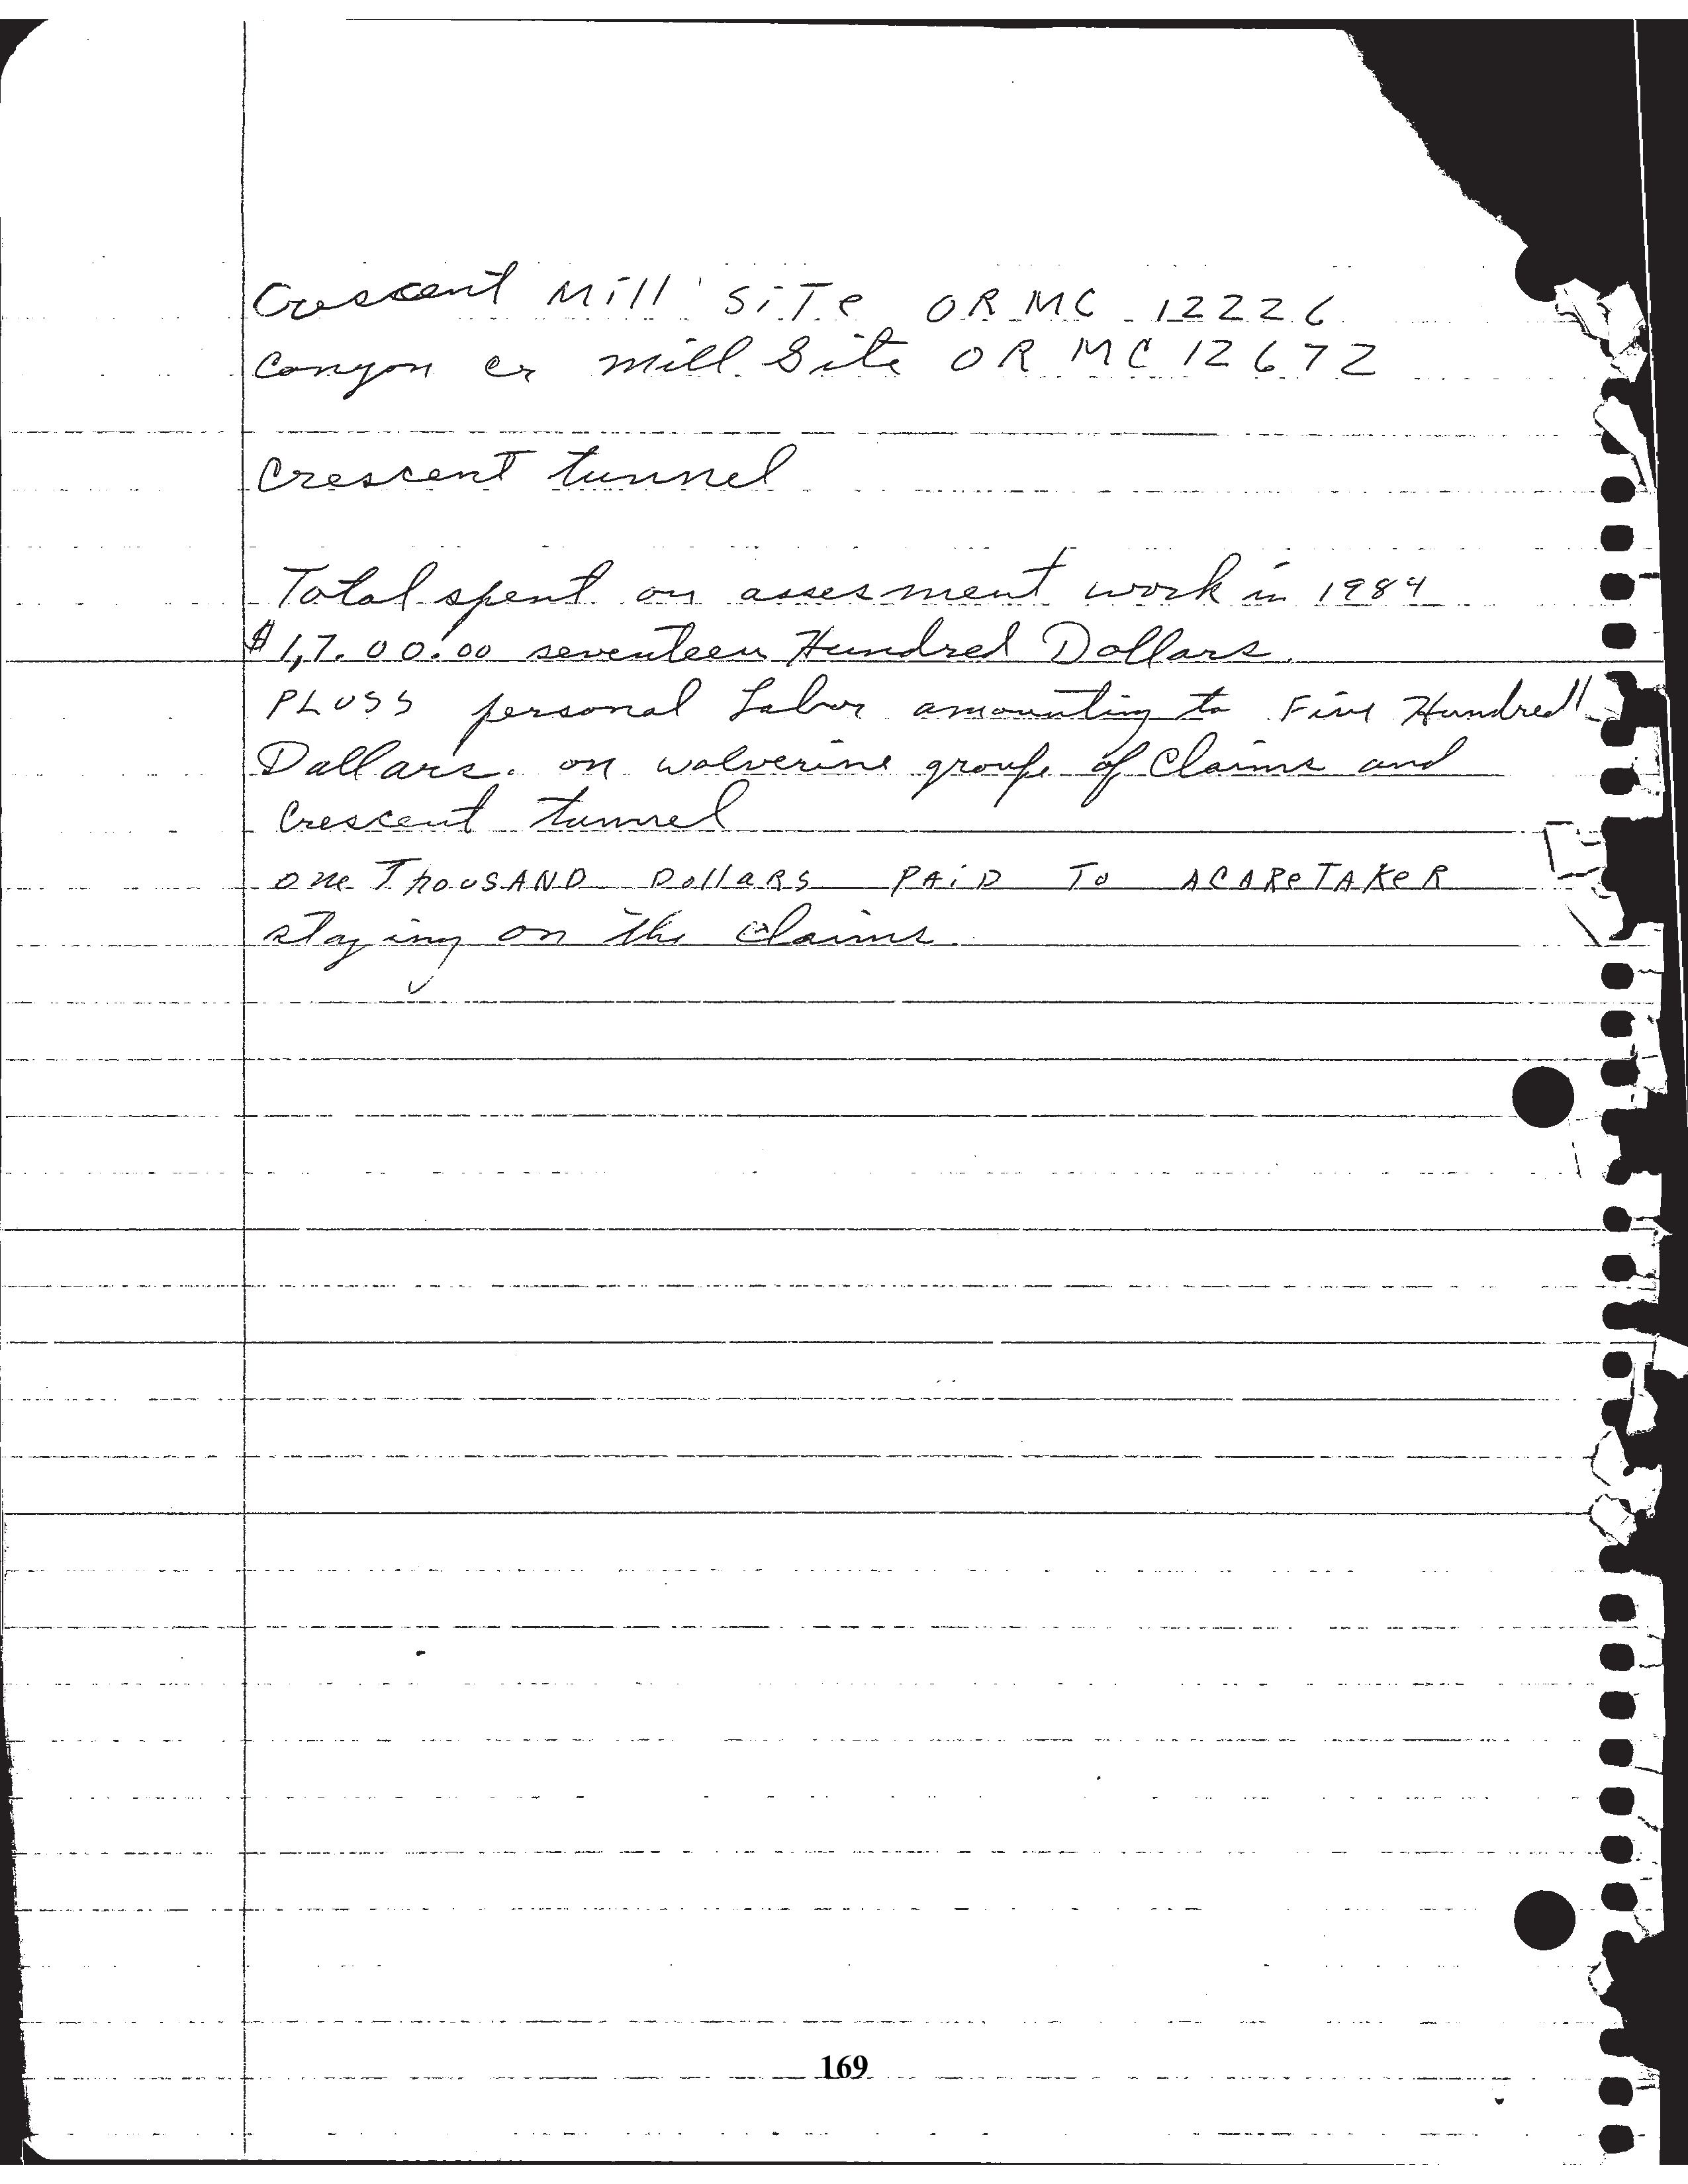 Crescent Mill SiTe OR MC 12226
Canyon cr mill Site OR MC 12672
Crescent tunnel
Total spent on assesment work in 1984
$1,7.00.00 seventeen Hundred Dollars.
PLUSS personal Labor amounting to Five Hundred
Dollars. on wolverine groupe of Claims and
Crescent tunnel
one ThousAND DollaRS PAiD To ACAReTAKeR
staying on the claims
169